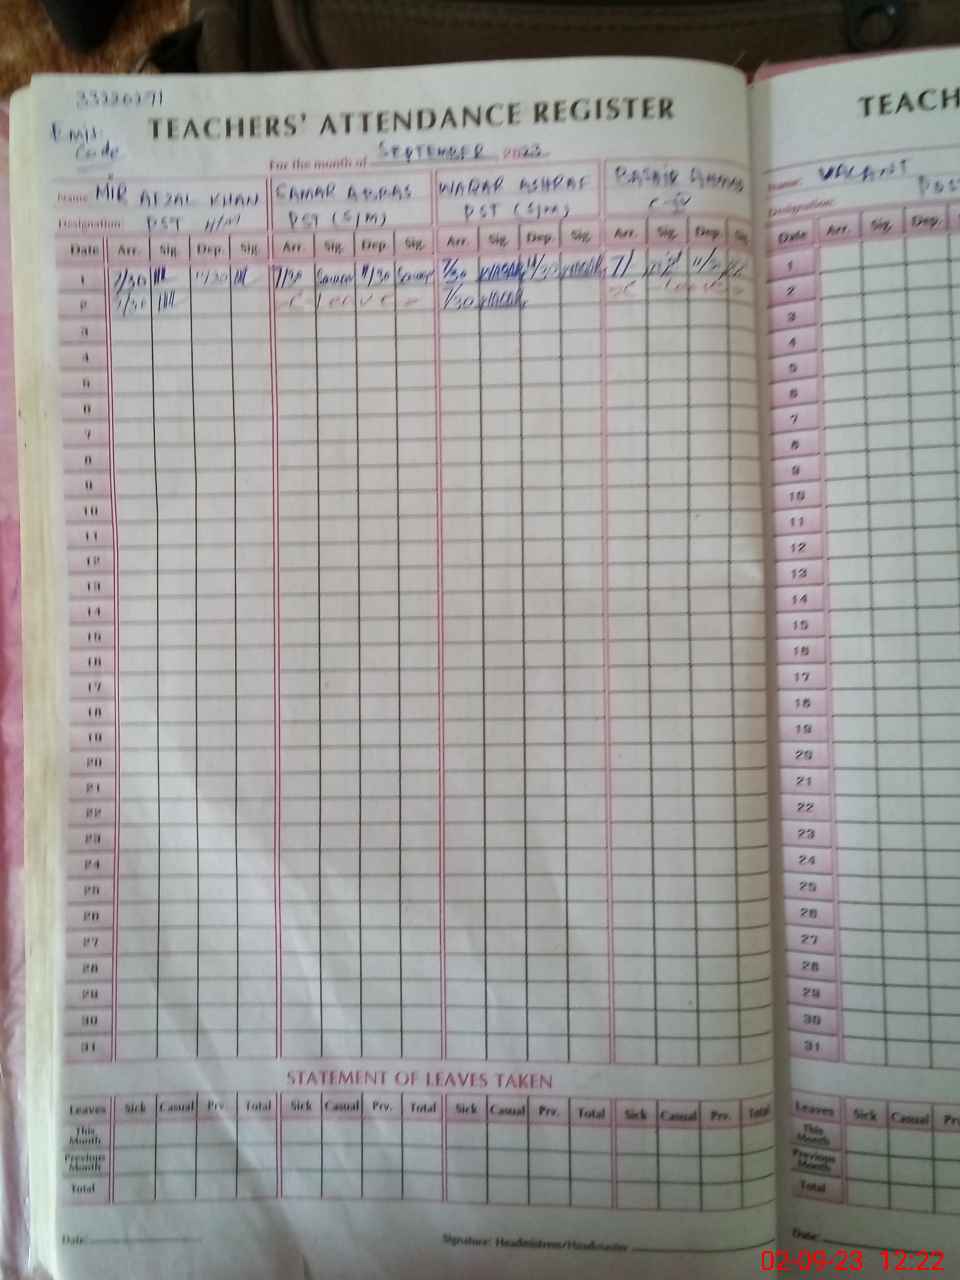 33220271
Emis Code
TEACHERS' ATTENDANCE REGISTER
For the month of SEPTEMBER 2023
Name MIR AFZAL KHAN SAMAR ABBAS WAQAR ASHRAF BASHIR AHMAD
Designation: PST H/M PST (S/M) PST (S/M) C-IV
Date Arr. Sig. Dep. Sig. Arr. Sig. Dep. Sig. Arr. Sig. Dep. Sig. Arr. Sig. Dep. Sig.
1 7/30 11/30 7/30 Samar 11/30 Samar 7/30 WAQAR 11/30 WAQAR 7/ 11/30
2 7/30 C leave 7/30 WAQAR leave
3
4
5
6
7
8
9
10
11
12
13
14
15
16
17
18
19
20
21
22
23
24
25
26
27
28
29
30
31
STATEMENT OF LEAVES TAKEN
Leaves Sick Casual Prv. Total Sick Casual Prv. Total Sick Casual Prv. Total Sick Casual Prv. Total
This Month
Previous Month
Total
Date: Signature: Headmistress/Headmaster
TEACH
Name: VACANT POST
Designation:
Date Arr. Sig. Dep.
1
2
3
4
5
6
7
8
9
10
11
12
13
14
15
16
17
18
19
20
21
22
23
24
25
26
27
28
29
30
31
Leaves Sick Casual Pr
This Month
Previous Month
Total
Date:
02-09-23 12:22